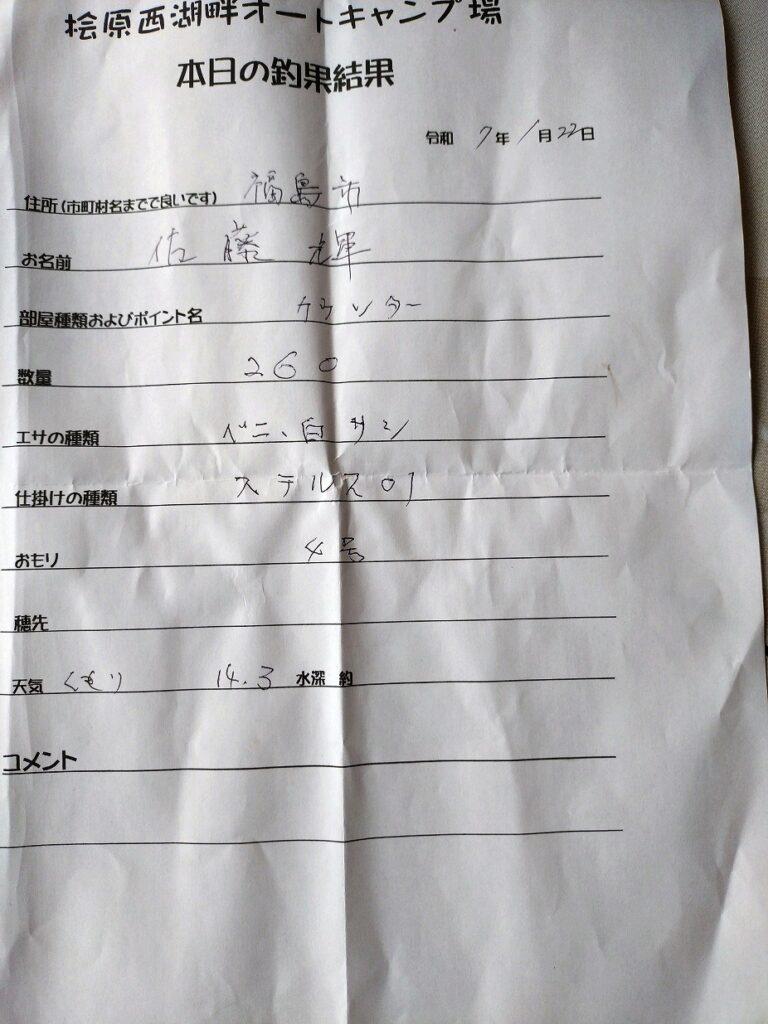 桧原西湖畔オートキャンプ場
本日の釣果結果
令和 7年 1月 22日
住所(市町村名までで良いです) 福島市
お名前 佐藤 輝
部屋種類およびポイント名 カウンター
数量 260
エサの種類 ベニ、白サシ
仕掛けの種類 ステルス01
おもり 4号
穂先
天気 くもり 14.3 水深 約
コメント